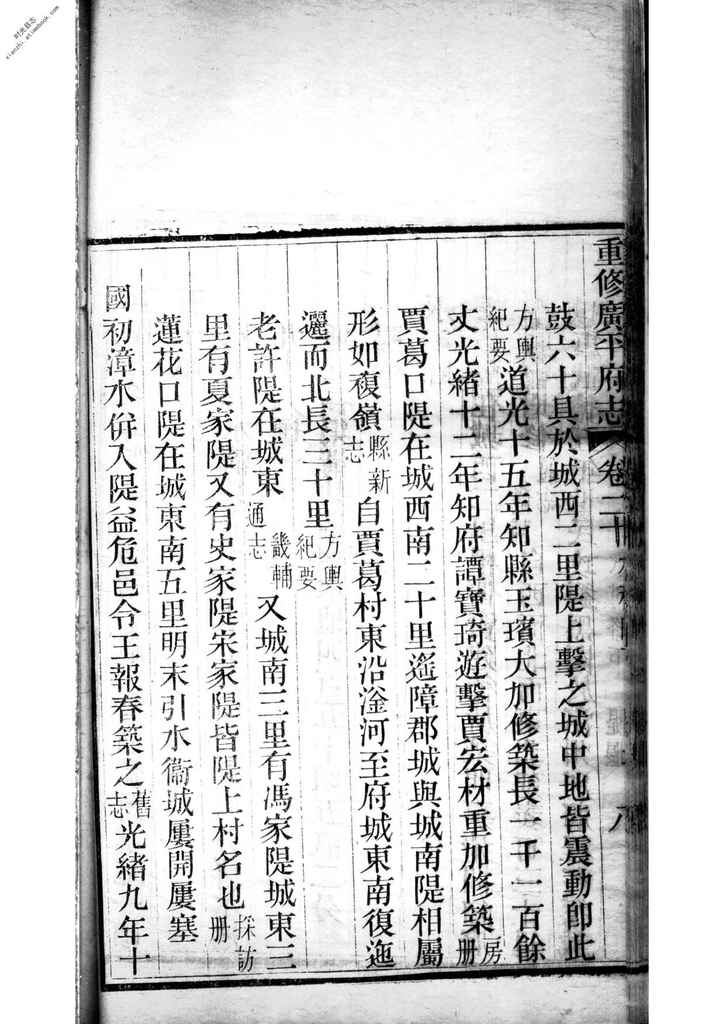 重修廣平府志 卷二十 八
鼓六十具於城西二里隄上擊之城中地皆震動卽此
方輿紀要道光十五年知縣王璸大加修築長一千一百餘
丈光緒十二年知府譚寶琦遊擊賈宏材重加修築房册
賈葛口隄在城西南二十里遙障郡城與城南隄相屬
形如複嶺縣新志自賈葛村東沿滏河至府城東南復迤
邐而北長三十里方輿紀要
老許隄在城東畿輔通志又城南三里有馮家隄城東三
里有夏家隄又有史家隄宋家隄皆隄上村名也採訪册
蓮花口隄在城東南五里明末引水衞城屢開屢塞
國初漳水併入隄益危邑令王報春築之舊志光緒九年十
时光县志
xianzhi.atimebook.com